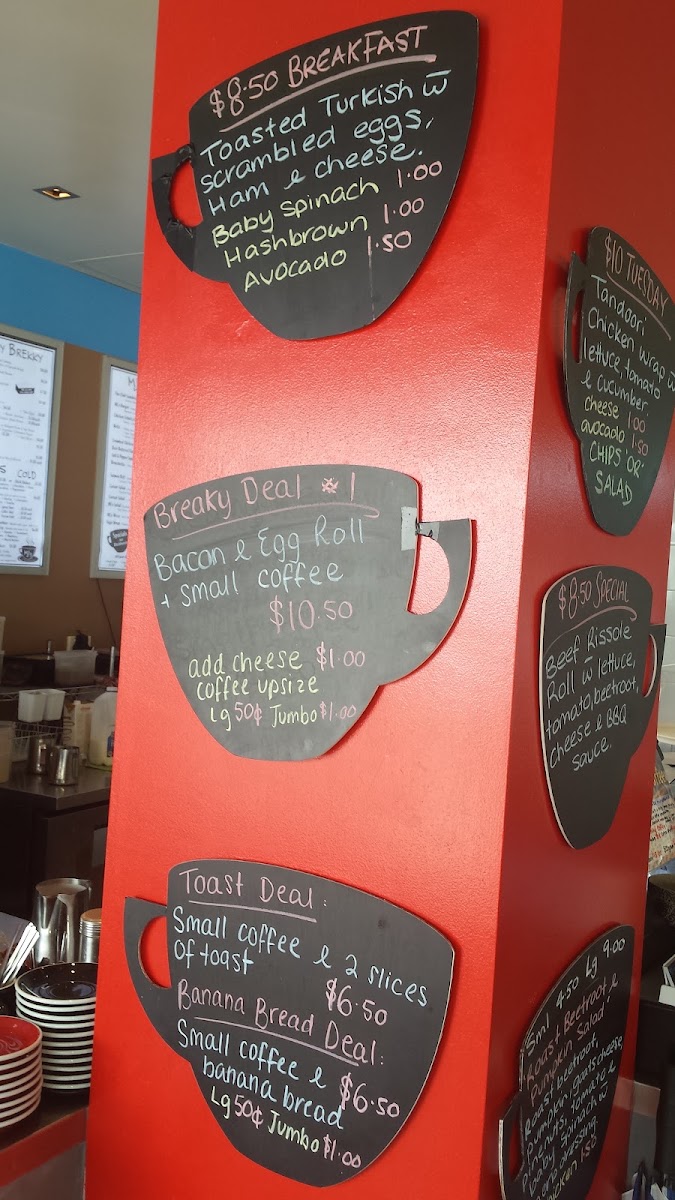 $8.50 BREAKFAST
Toasted Turkish w̄
scrambled eggs,
Ham & cheese.
Baby Spinach 1.00
Hashbrown 1.00
Avocado 1.50
Breaky Deal * 1
Bacon & Egg Roll
+ small coffee
$10.50
add cheese $1.00
coffee upsize
Lg 50¢ Jumbo $1.00
Toast Deal:
Small coffee & 2 slices
of toast
$6.50
Banana Bread Deal:
Small coffee &
banana bread
$6.50
Lg 50¢ Jumbo $1.00
$10 TUESDAY
Tandoori
Chicken Wrap w̄
lettuce, tomato
& cucumber.
cheese 1.00
avocado 1.50
CHIPS 'OR'
SALAD
$8.50 SPECIAL
Beef Rissole
Roll w̄ lettuce,
tomato, beetroot,
cheese & BBQ
sauce.
Sml 4.50 Lg 9.00
Roast Beetroot &
Pumpkin Salad
Roast beetroot,
Pumpkin, goats cheese
Pinenuts, tomato &
baby Spinach w̄
dressing.
1.50
BREKKY
COLD